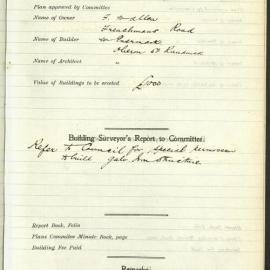 Plan approved by Committee
Name of Owner F. Wallace
Frenchmans Road
Name of Builder
St Randwick
Name of Architect "
Value of Buildings to be erected £1000
Building Surveyor's Report to Committee:
Refer to Council for special permission
to build galv. iron structure
Report Book, Folio
Plans Committee Minute Book, page
Building Fee Paid
Remarks: